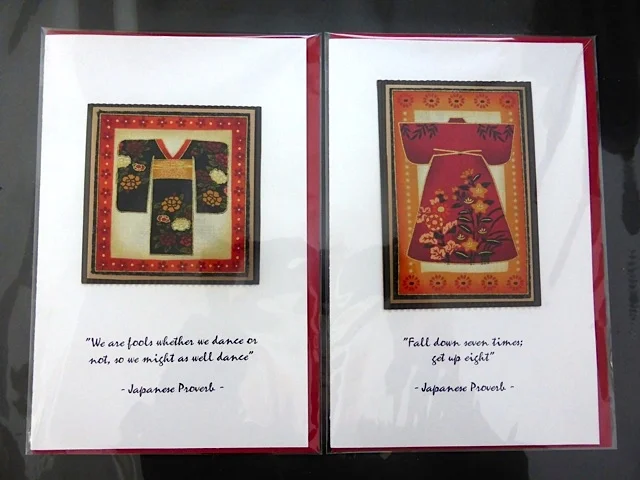 "We are fools whether we dance or
not, so we might as well dance"
- Japanese Proverb -
"Fall down seven times;
get up eight"
- Japanese Proverb -